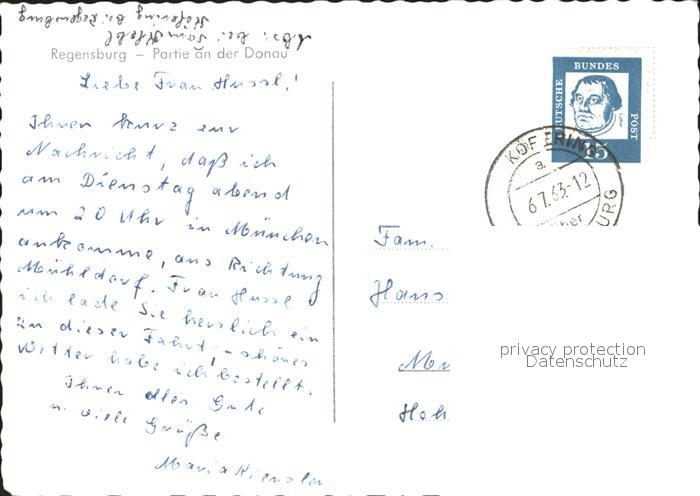 Abs: bei Fam.
Köfering b. Regensburg
Regensburg – Partie an der Donau
Liebe Frau Hussl!
Ihnen kurz zur
Nachricht, daß ich
am Dienstag abend
um 20 Uhr in München
ankomme, aus Richtung
Mühldorf. Frau Hussl
ich lade Sie herzlich ein
zu dieser Fahrt, – schönes
Wetter habe ich bestellt.
Ihnen alles Gute
u. viele Grüße
Maria
DEUTSCHE BUNDES POST
15
KÖFERING
a
6.7.63-12
BURG
Fam.
Hans
privacy protection
Datenschutz